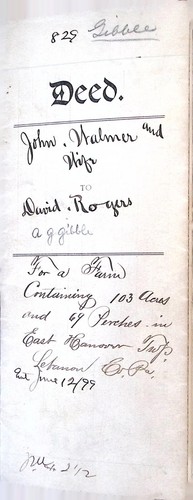 829 Gibble
Deed.
John . Walmer and
Wife
TO
David . Rogers
a g gibble
For a Farm
Containing 103 Acres
and 69 Perches in
East Hanover Twp.
Lebanon Co. Pa.
Ent June 12/99
2 1/2